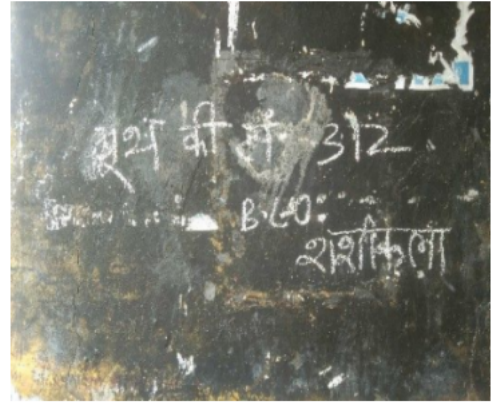 बूथ की सं. 312.
B.L.O:
शशीकला